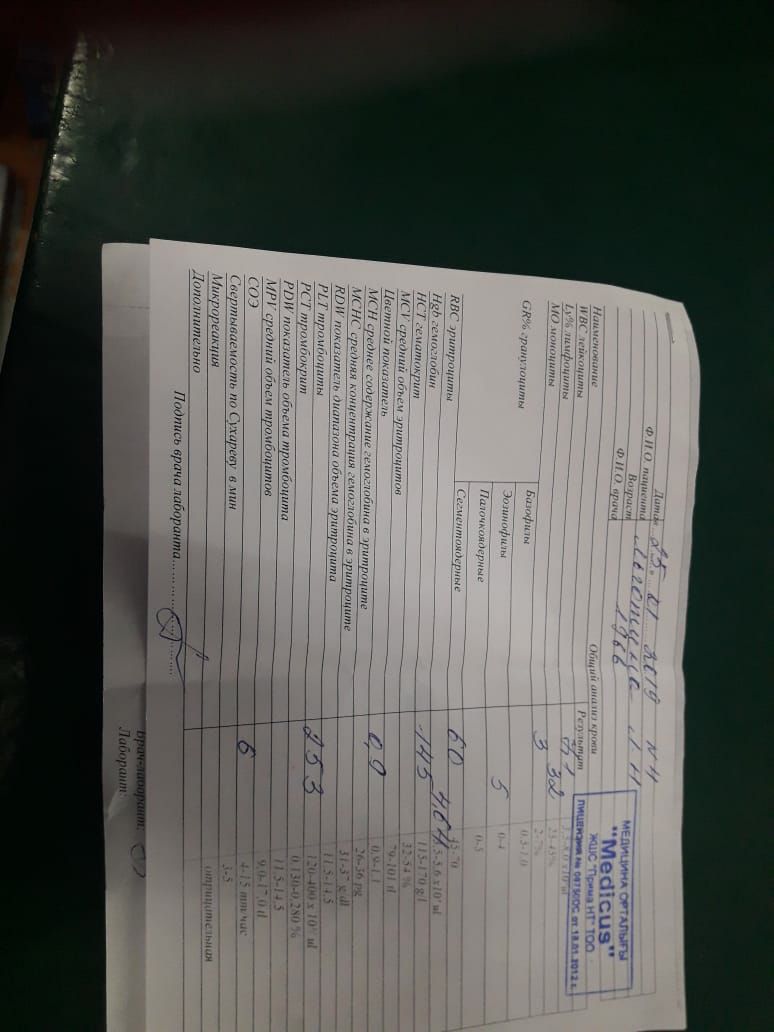 Дата «25» 01 2019 N 4
Ф.И.О. пациента
Возраст 1966
Ф.И.О. врача
МЕДИЦИНА ОРТАЛЫҒЫ
"Medicus"
ЖШС "Прима НТ" ТОО
ЛИЦЕНЗИЯ № 08750DC от 18.01.2012 г.
Общий анализ крови
Наименование Результат
WBC лейкоциты 7,1
Ly% лимфоциты 32 25-45%
МО моноциты 3 2-7%
GR% гранулоциты
Базофилы 0,5-1,0
Эозинофилы 5 0-4
Палочкоядерные 0-5
Сегментоядерные 60 45-70
RBC эритроциты 4,64
Hgb гемоглобин 145 115-170 g l
HCT гематокрит 32-54 %
MCV средний объем эритроцитов 79-101 fl
Цветной показатель 0,9 0,9-1,1
MCH среднее содержание гемоглобина в эритроците 26-36 pg
MCHC средняя концентрация гемоглобина в эритроците 31-37 g dl
RDW показатель диапазона объема эритроцита 11,5-14,5
PLT тромбоциты 253 120-400 x 10⁹ ul
PCT тромбокрит 0,150-0,280 %
PDW показатель объема тромбоцита 11,5-14,5
MPV средний объем тромбоцитов 9,0-17,0 fl
СОЭ 6 4-15 mm/час
Свертываемость по Сухареву в мин 3-5
Микрореакция отрицательная
Дополнительно
Подпись врача лаборанта
Врач-лаборант:
Лаборант: